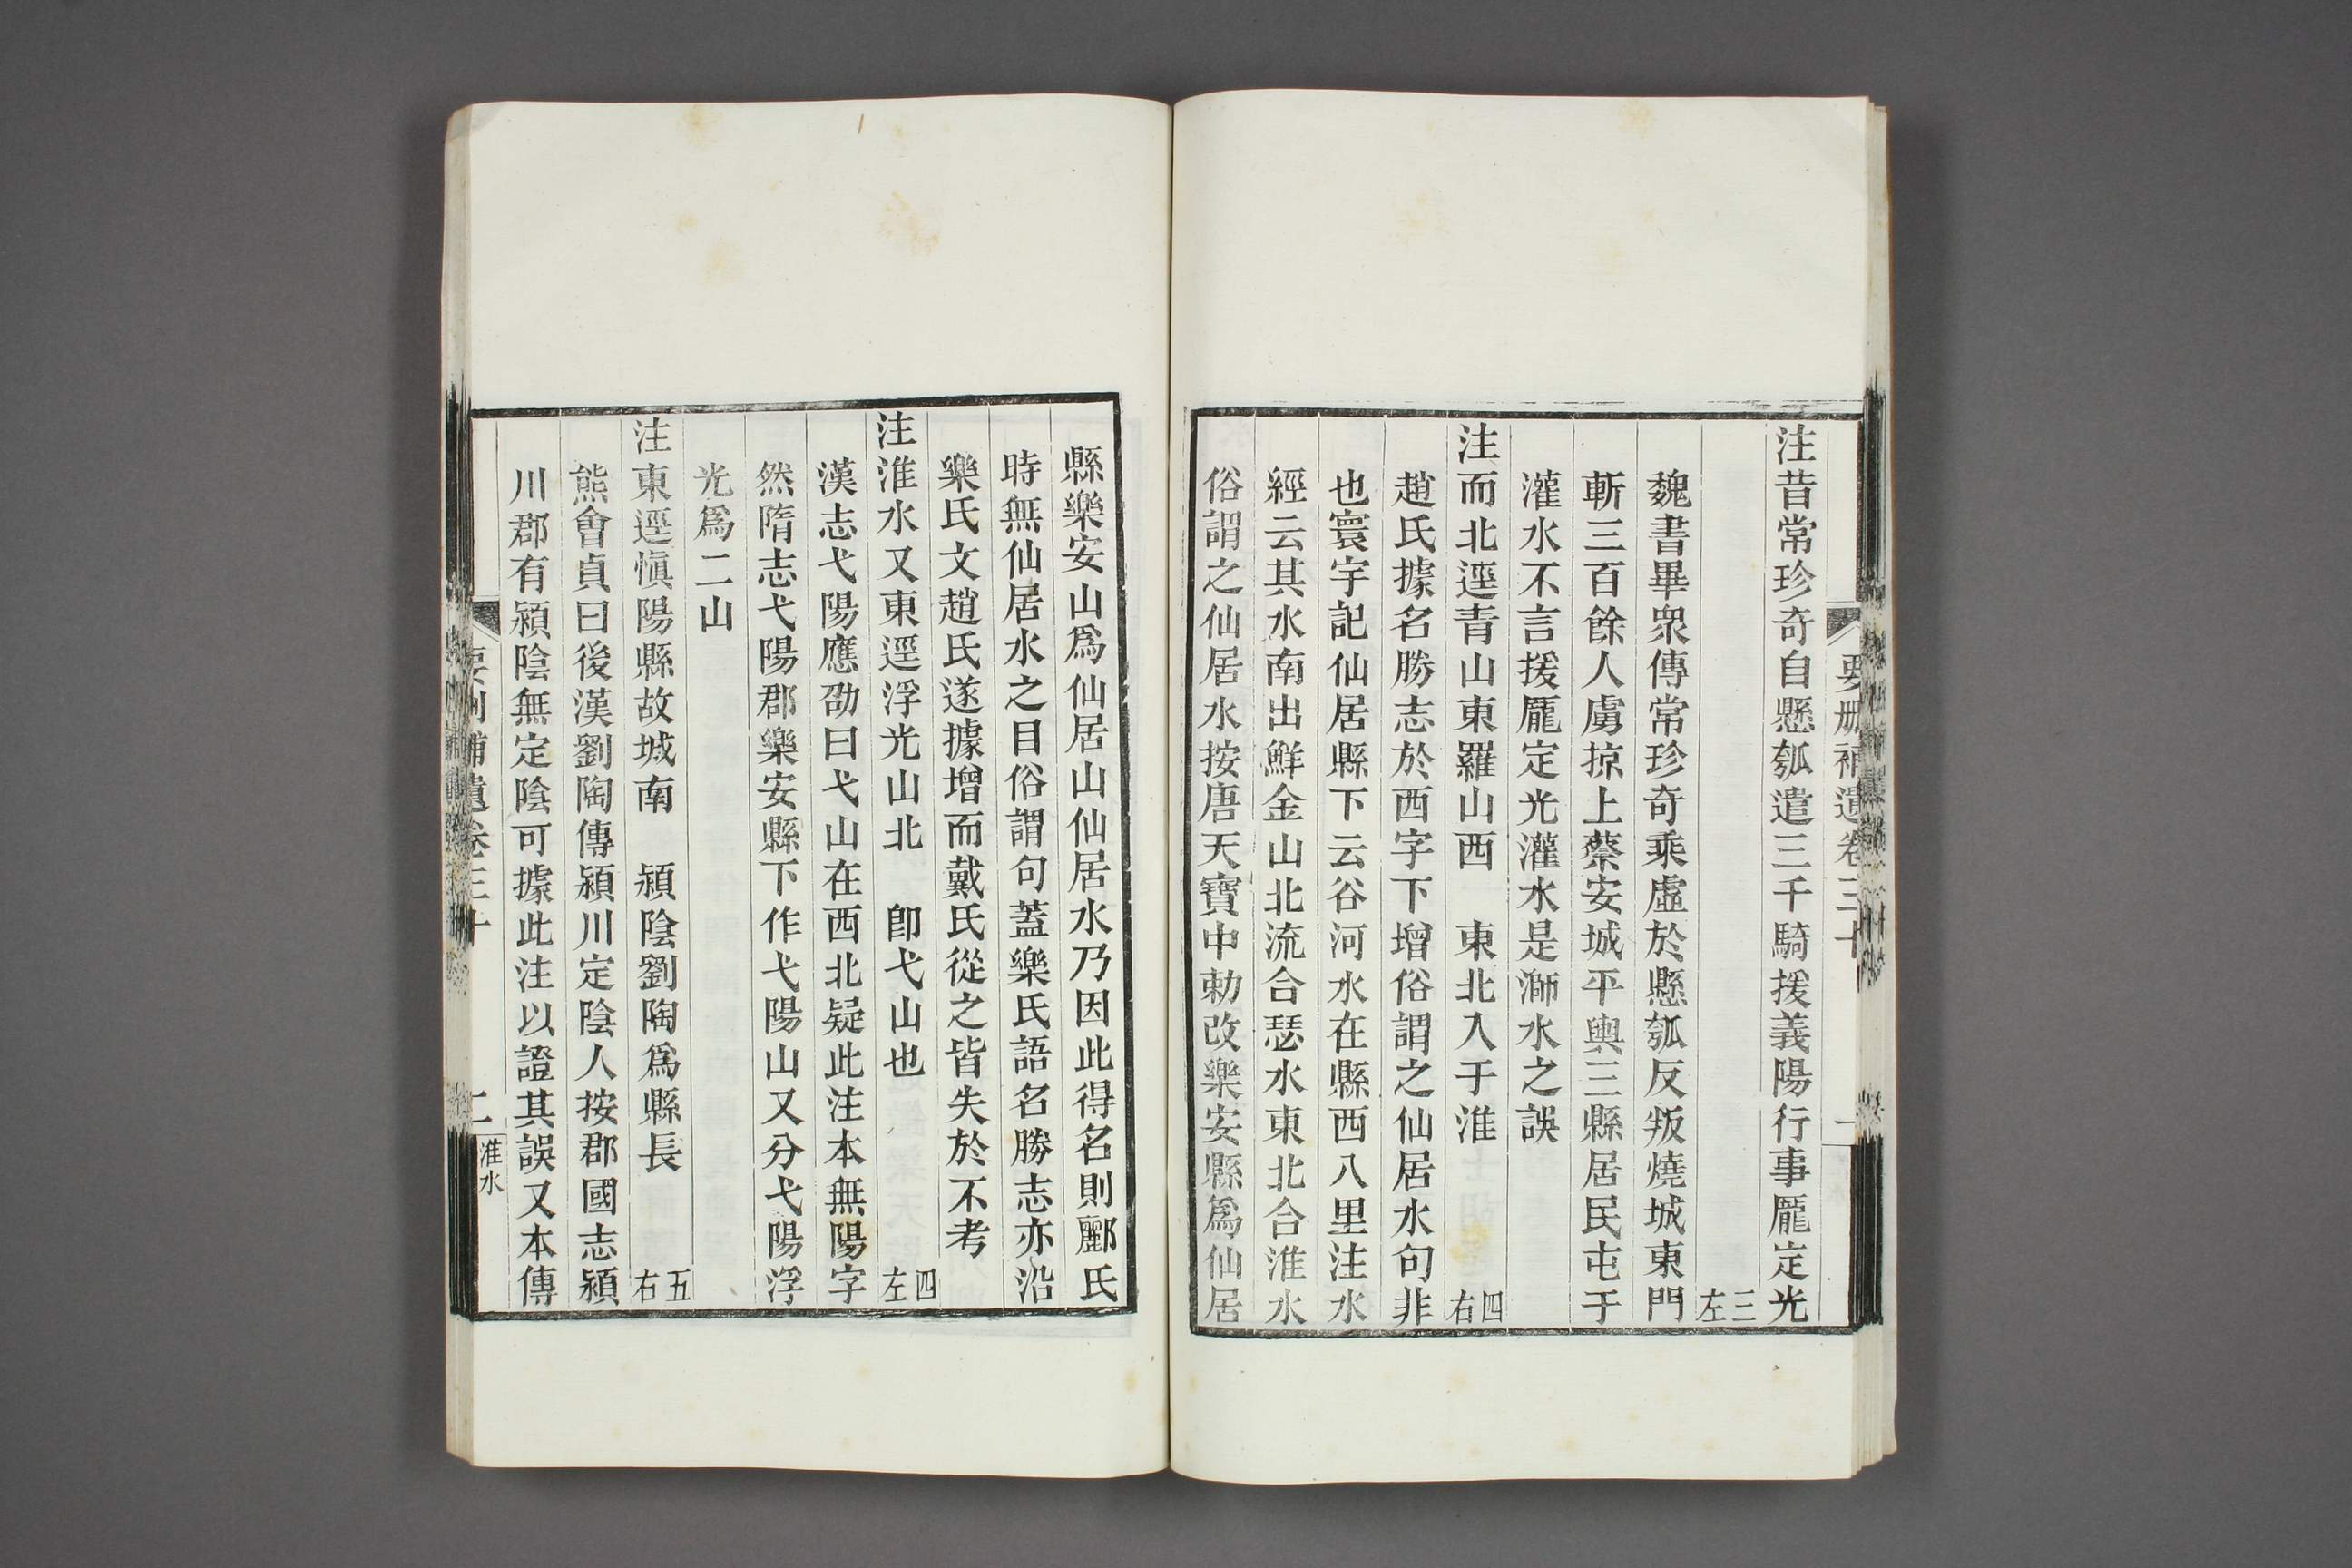 要刪補遺卷三十
注昔常珍奇自懸瓠遣三千騎援義陽行事龎定光
三左
魏書畢眾傳常珍奇乘虛於懸瓠反叛燒城東門
斬三百餘人虜掠上蔡安城平輿三縣居民屯于
灌水不言援龎定光灌水是溮水之誤
注而北逕青山東羅山西　東北入于淮　四右
趙氏據名勝志於西字下增俗謂之仙居水句非
也寰宇記仙居縣下云谷河水在縣西八里注水
經云其水南出鮮金山北流合瑟水東北合淮水
俗謂之仙居水按唐天寶中勅改樂安縣爲仙居
縣樂安山爲仙居山仙居水乃因此得名則酈氏
時無仙居水之目俗謂句蓋樂氏語名勝志亦沿
樂氏文趙氏遂據增而戴氏從之皆失於不考
注淮水又東逕浮光山北　卽弋山也　四左
漢志弋陽應劭曰弋山在西北疑此注本無陽字
然隋志弋陽郡樂安縣下作弋陽山又分弋陽浮
光爲二山
注東逕愼陽縣故城南　潁陰劉陶爲縣長　五右
熊會貞曰後漢劉陶傳潁川定陰人按郡國志潁
川郡有潁陰無定陰可據此注以證其誤又本傳
要刪補遺卷三十
二
淮水